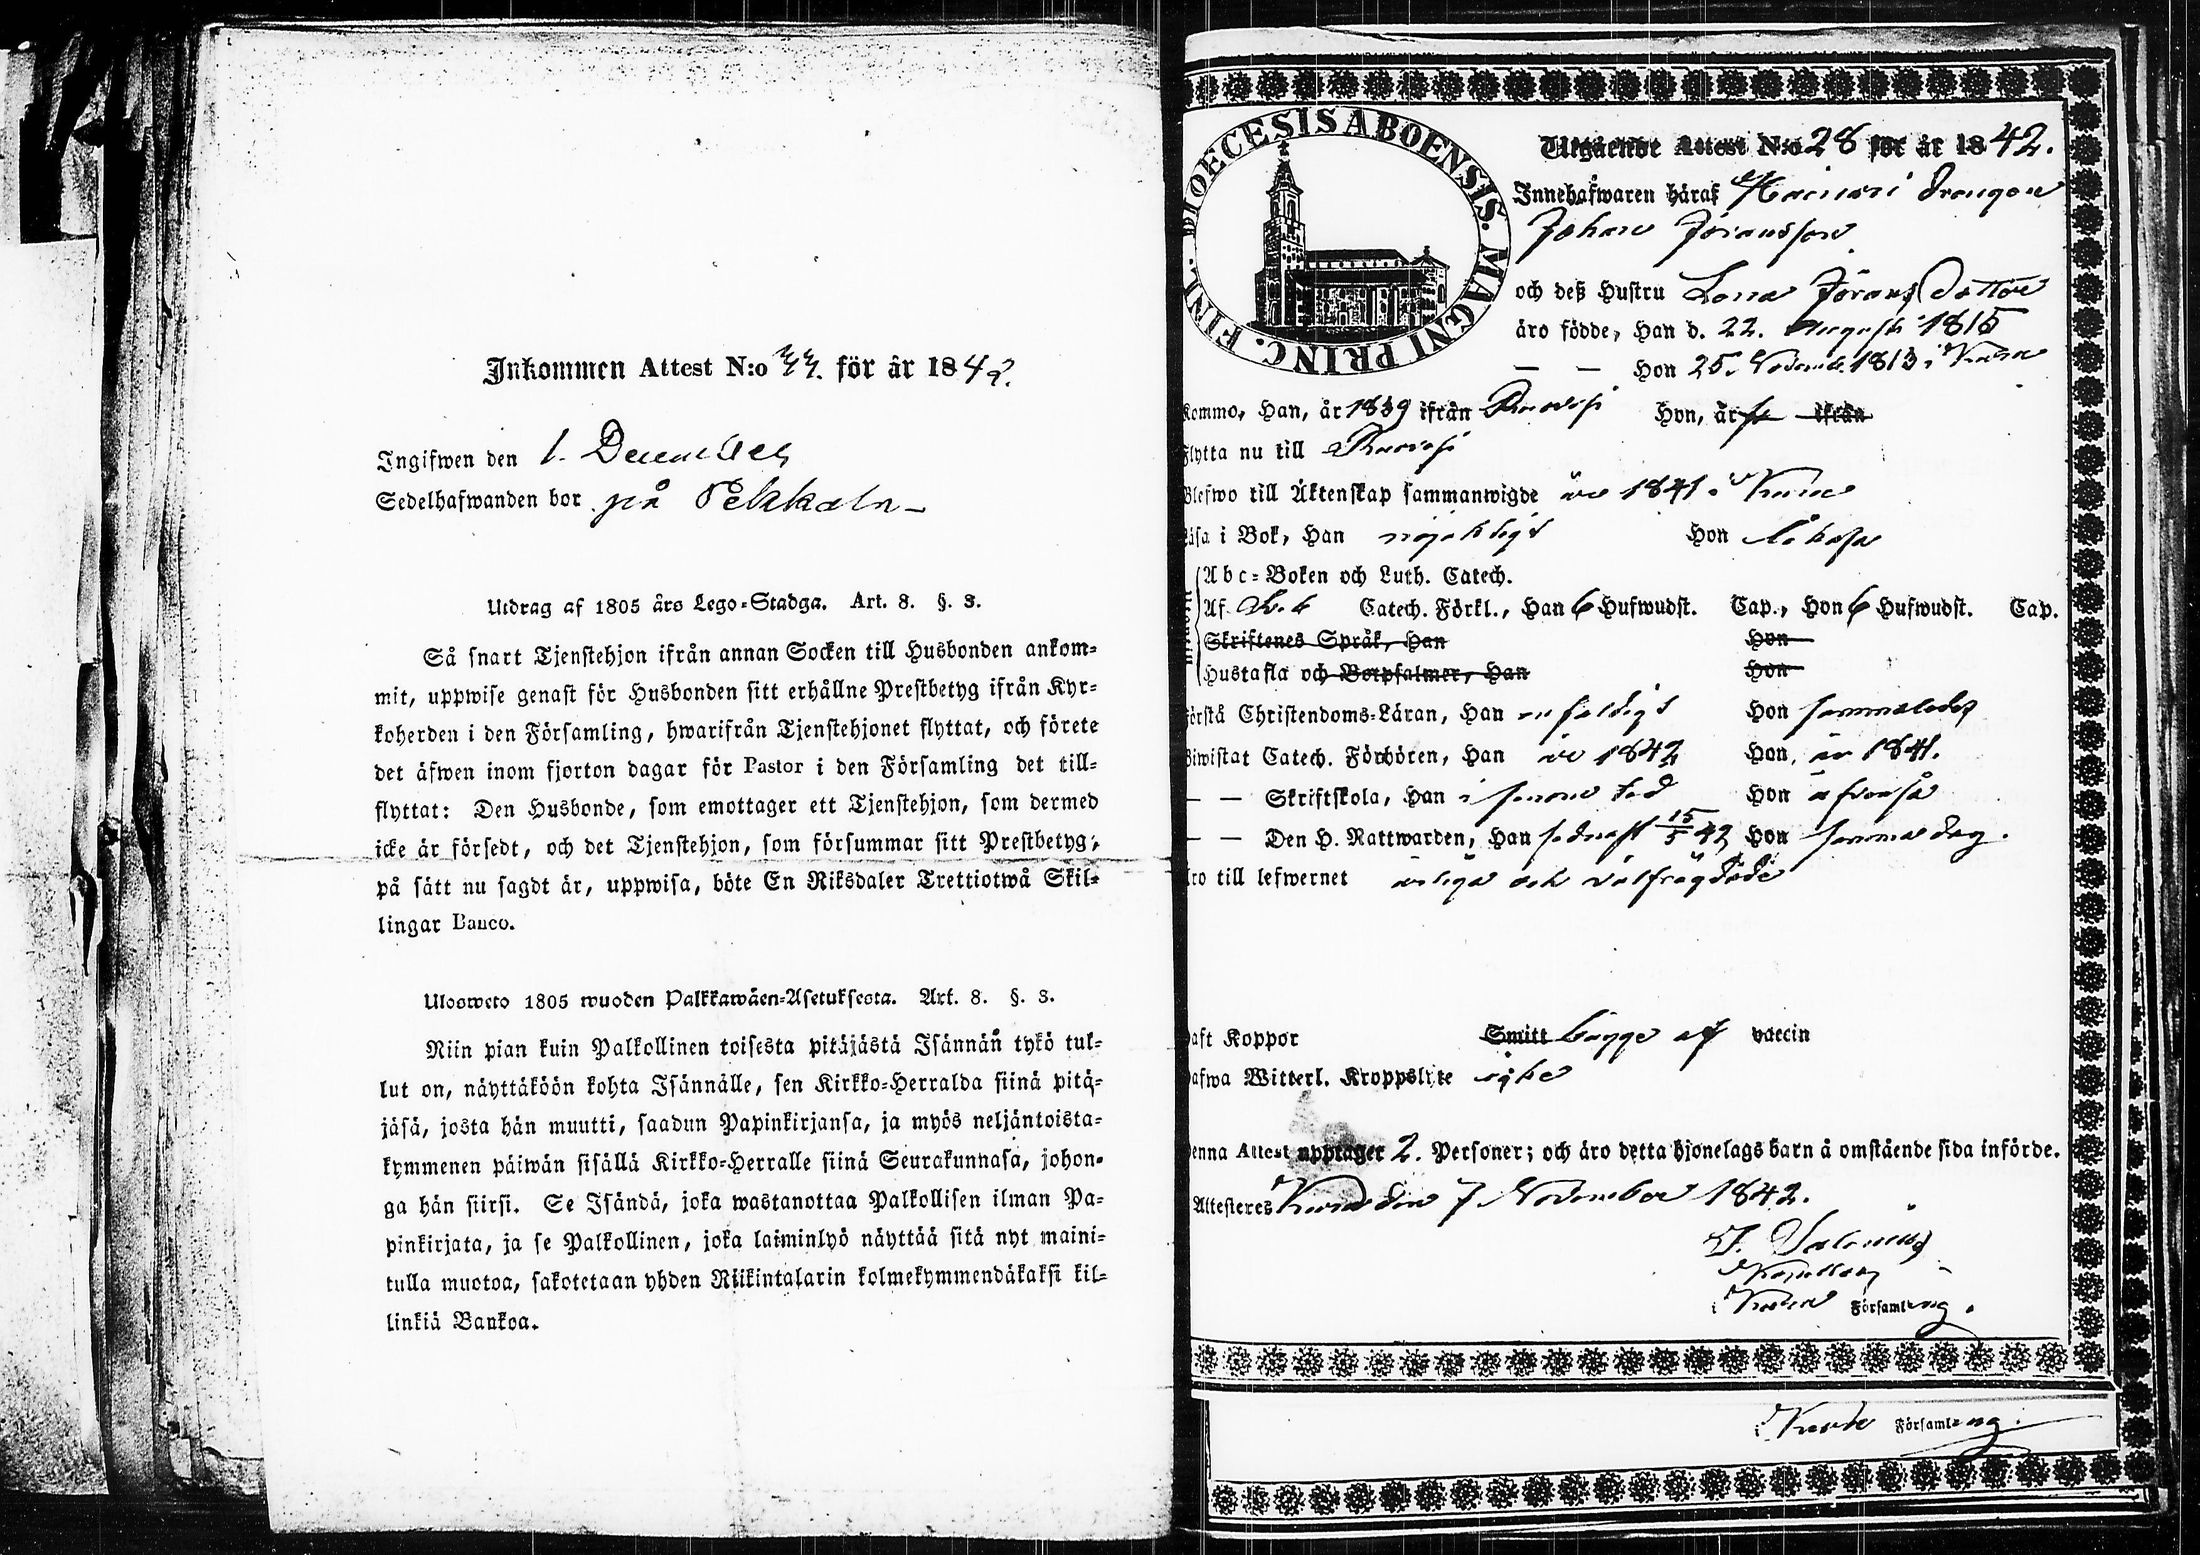 Inkommen Attest N:o 44. för år 1842.
Ingifwen den 1. December
Sedelhafwanden bor på Pekkala
Utdrag af 1805 års Lego-Stadga. Art. 8. §. 3.
Så snart Tjenstehjon ifrån annan Socken till Husbonden ankom-
mit, uppwise genast för Husbonden sitt erhållne Prestbetyg ifrån Kyr-
koherden i den Församling, hwarifrån Tjenstehjonet flyttat, och förete
det äfwen inom fjorton dagar för Pastor i den Församling det till-
flyttat: Den Husbonde, som emottager ett Tjenstehjon, som dermed
icke är försedt, och det Tjenstehjon, som försummar sitt Prestbetyg,
på sätt nu sagdt är, uppwisa, böte En Riksdaler Trettiotwå Skil-
lingar Banco.
Ulosweto 1805 wuoden Palkkawäen-Asetuksesta. Art. 8. §. 3.
Niin pian kuin Palkollinen toisesta pitäjästä Isännän tykö tul-
lut on, näyttäköön kohta Isännälle, sen Kirkko-Herralda siinä pitä-
jäsä, josta hän muutti, saadun Papinkirjansa, ja myös neljäntoista-
kymmenen päiwän sisällä Kirkko-Herralle siinä Seurakunnasa, johon-
ga hän siirsi. Se Isändä, joka wastanottaa Palkollisen ilman Pa-
pinkirjata, ja se Palkollinen, joka laiminlyö näyttää sitä nyt maini-
tulla muotoa, sakotetaan yhden Riikintalarin kolmekymmendäkaksi kil-
linkiä Bankoa.
DIOECESIS ABOENSIS. MAGNI PRINC. FINL.
Utgående Attest N:o 28 för år 1842.
Innehafwaren häraf Heinari drengen
Johan Jöransson
och deß Hustru Lena Jöransdotter
äro födde, Han d. 22. Augusti 1815
— — Hon 25. Novemb. 1813 i Kuru
Kommo, Han, år 1839 ifrån Ruovesi Hon, år ifrån
Flytta nu till Ruovesi
Blefwo till Äktenskap sammanwigde år 1841 i Kuru
Läsa i Bok, Han nöjaktigt Hon likaså
Abc-Boken och Luth. Catech.
Af Catech. Förkl., Han 6 Hufwudst. Cap., Hon 6 Hufwudst. Cap.
Skriftenes Språk, Han Hon
Hustafla och Botpsalmer, Han Hon
Förstå Christendoms-Läran, Han enfaldigt Hon sammaledes
Biwistat Catech. Förhören, Han år 1842 Hon, år 1841.
— — Skriftskola, Han i sinom tid Hon äfvenså
— — Den H. Nattwarden, Han sednast 15/5 42 Hon samma dag.
Äro till lefwernet ärliga och välfrägdade
Haft Koppor Smitt bägge af vaccin
Hafwa Witterl. Kroppslyte icke
Denna Attest upptager 2. Personer; och äro detta hjonelags barn å omstående sida införde.
Attesteres Kuru den 7 November 1842.
F. Salenius
Kapellan
i Kuru Församling.
i Kuru Församling.